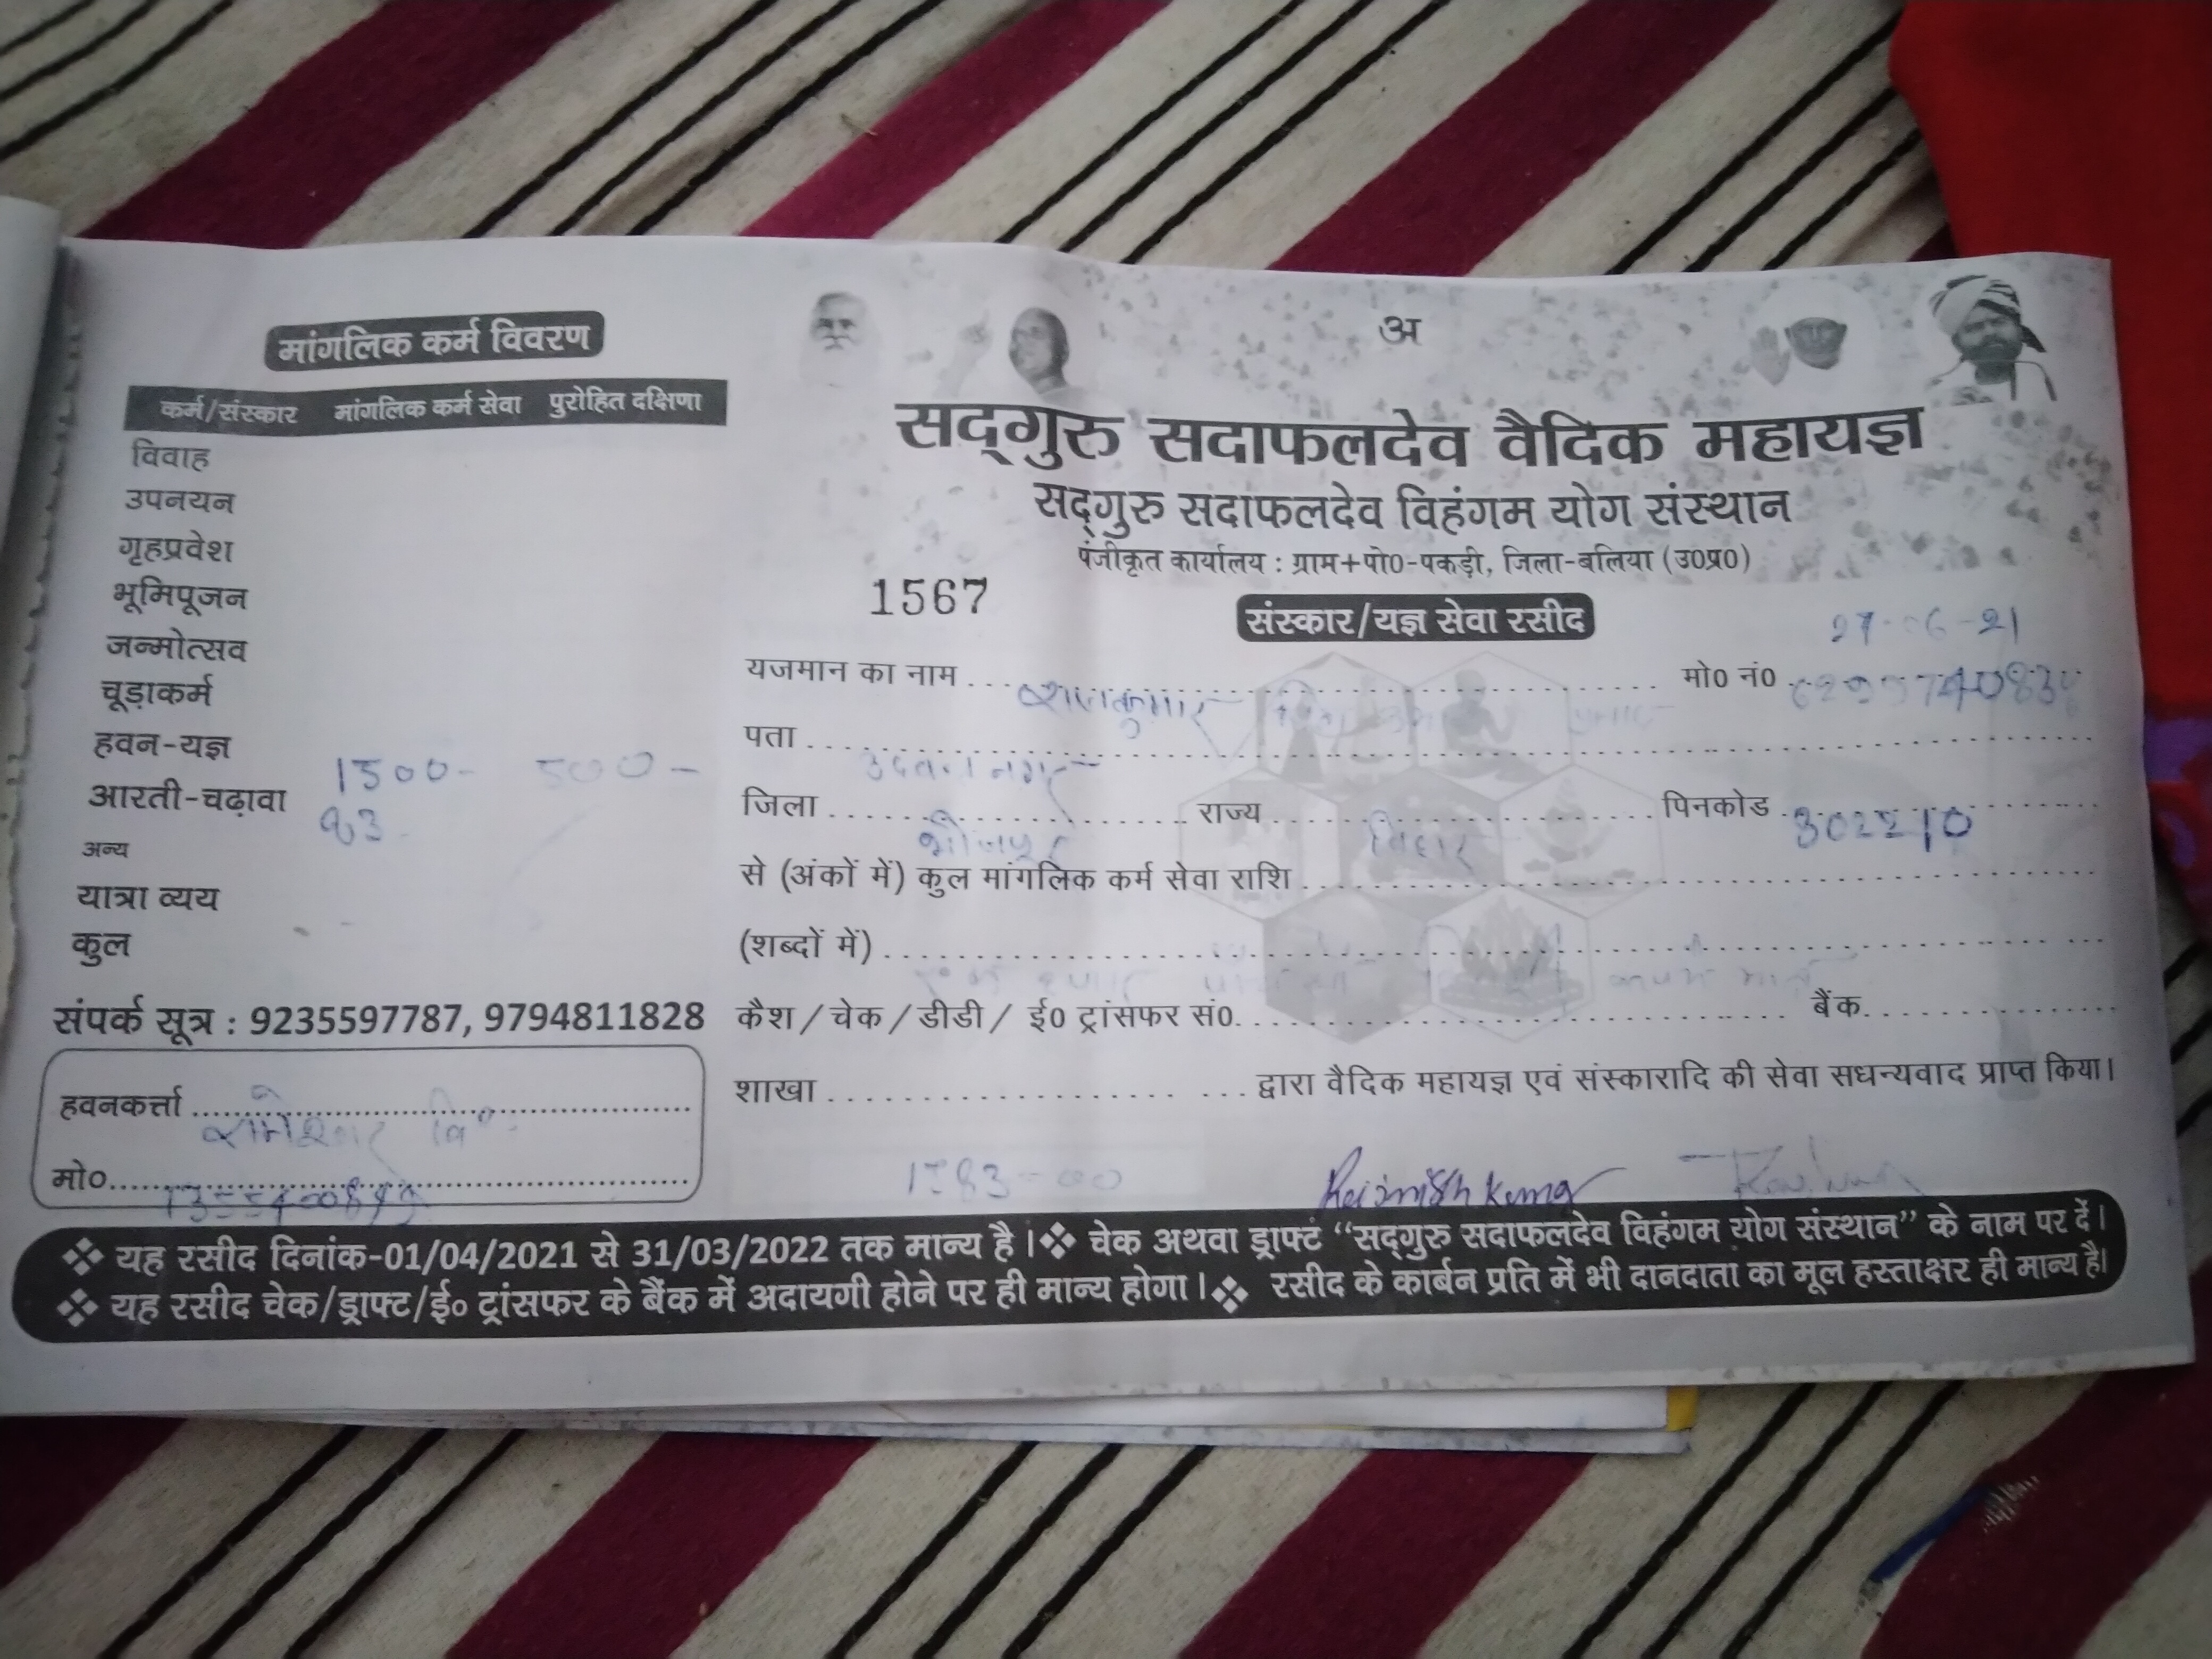 मांगलिक कर्म विवरण
कर्म/संस्कार मांगलिक कर्म सेवा पुरोहित दक्षिणा
विवाह
उपनयन
गृहप्रवेश
भूमिपूजन
जन्मोत्सव
चूड़ाकर्म
हवन-यज्ञ 1500- 500-
आरती-चढ़ावा 83
अन्य
यात्रा व्यय
कुल
संपर्क सूत्र : 9235597787, 9794811828
हवनकर्त्ता
मो०
अ
सद्गुरु सदाफलदेव वैदिक महायज्ञ
सद्गुरु सदाफलदेव विहंगम योग संस्थान
पंजीकृत कार्यालय : ग्राम+पो0-पकड़ी, जिला-बलिया (उ0प्र0)
1567
संस्कार/यज्ञ सेवा रसीद
27-06-21
यजमान का नाम राजकुमार मो0 नं0
पता नगर
जिला भोजपुर राज्य बिहार पिनकोड 802210
से (अंकों में) कुल मांगलिक कर्म सेवा राशि
(शब्दों में)
कैश / चेक / डीडी / ई0 ट्रांसफर सं0. बैंक
शाखा द्वारा वैदिक महायज्ञ एवं संस्कारादि की सेवा सधन्यवाद प्राप्त किया।
1583-00
यह रसीद दिनांक-01/04/2021 से 31/03/2022 तक मान्य है। चेक अथवा ड्राफ्ट "सद्गुरु सदाफलदेव विहंगम योग संस्थान" के नाम पर दें।
यह रसीद चेक/ड्राफ्ट/ई० ट्रांसफर के बैंक में अदायगी होने पर ही मान्य होगा। रसीद के कार्बन प्रति में भी दानदाता का मूल हस्ताक्षर ही मान्य है।